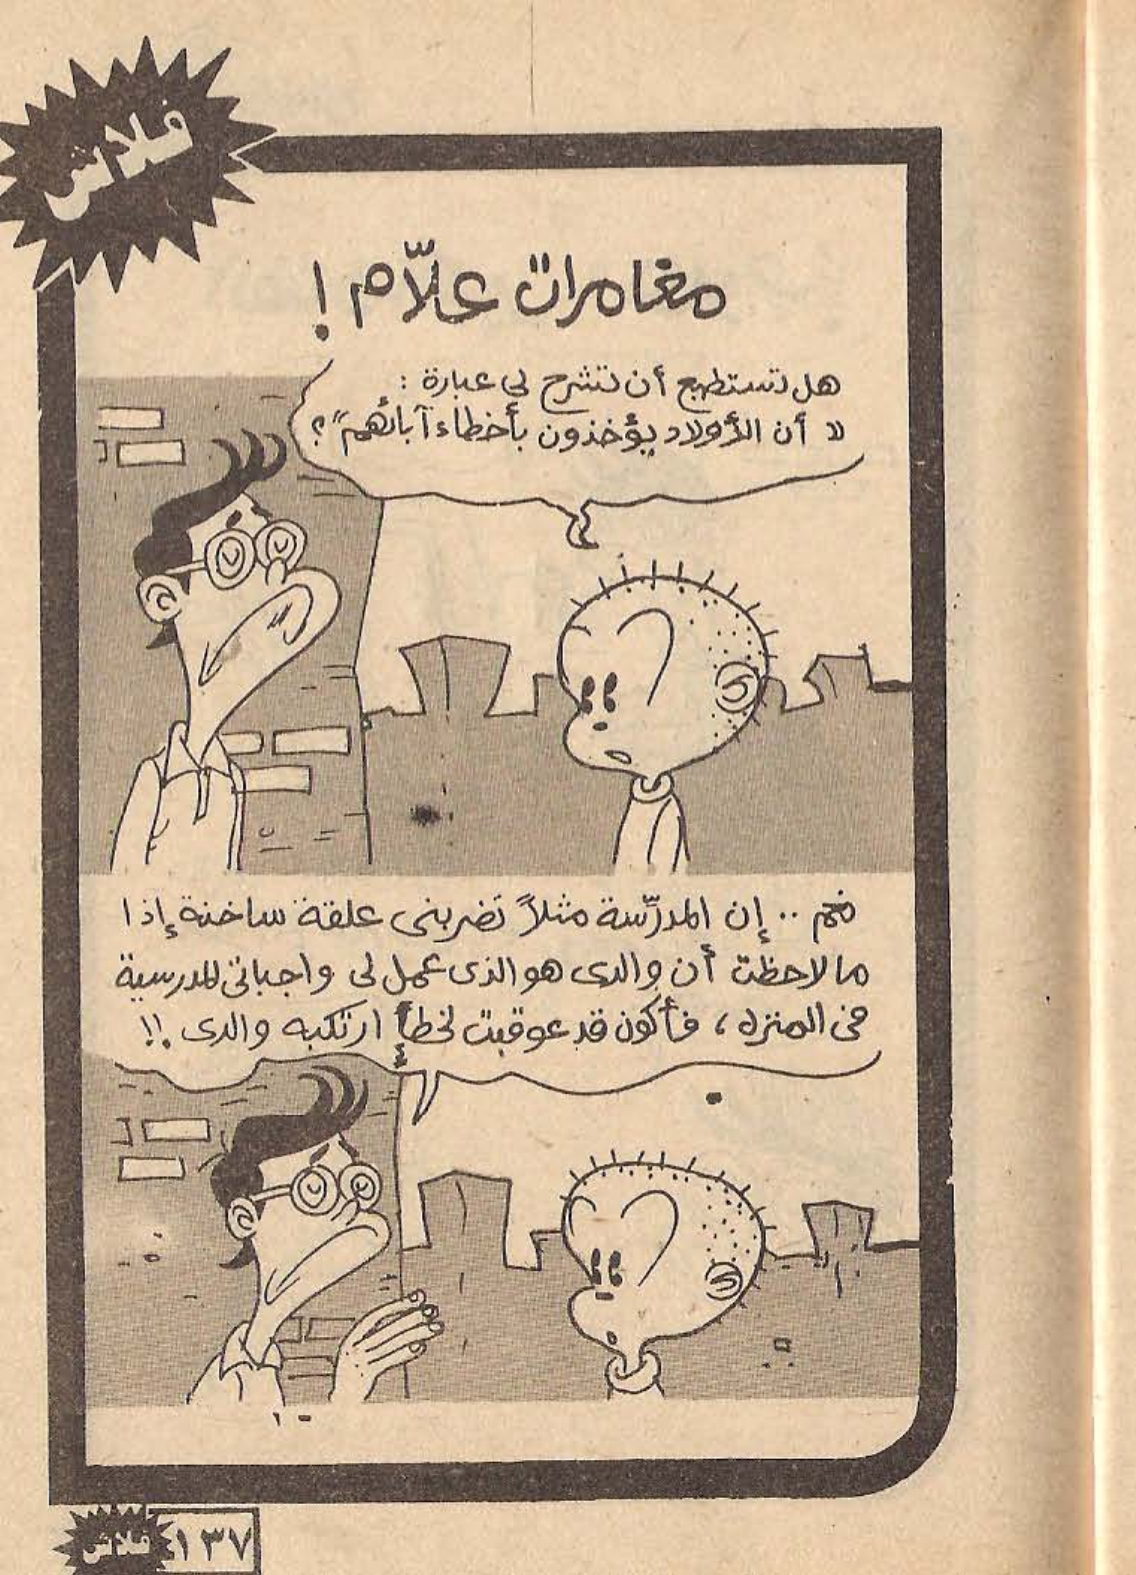 فلاش
مغامرات علّام !
هل تستطيع أن تشرح لى عبارة :
" أن الأولاد يؤخذون بأخطاء آبائهم " ؟
نعم .. إن المدرّسة مثلاً تضربنى علقة ساخنة إذا
ما لاحظت أن والدى هو الذى عمل لى واجباتى المدرسية
فى المنزل ، فأكون قد عوقبت لخطأ ارتكبه والدى .!!
فلاش ١٣٧